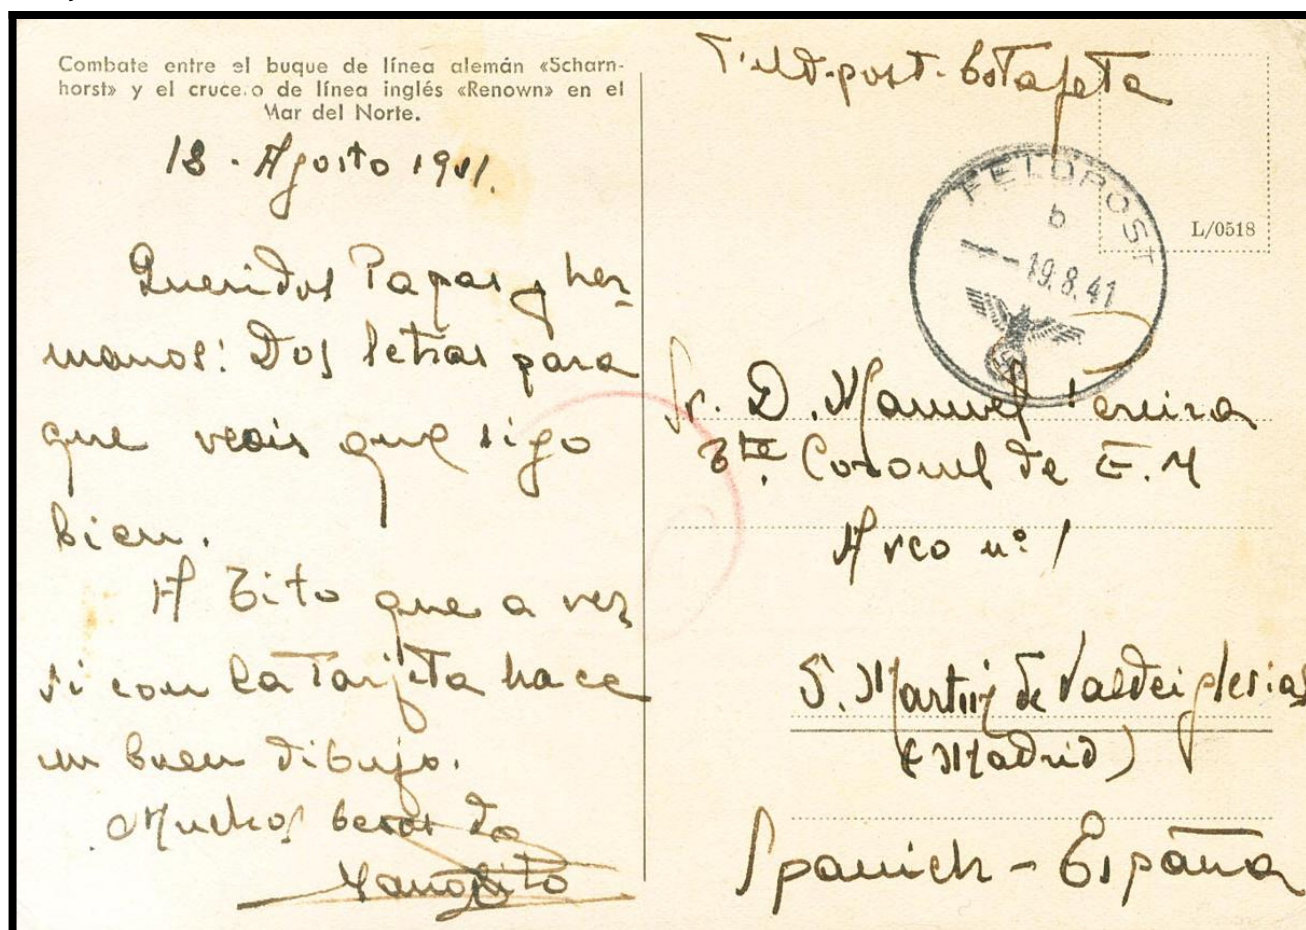 Combate entre el buque de línea alemán «Scharn-
horst» y el crucero de línea inglés «Renown» en el
Mar del Norte.
18 - Agosto 1941.
Queridos Papas y her-
manos: Dos letras para
que veais que sigo
bien.
A Tito que a ver
si con la Tarjeta hace
un buen dibujo.
Muchos besos de
Manolito
Feld-post-Estafeta
FELDPOST
b
- - 19.8.41
L/0518
Sr. D. Manuel Pereira
Tte. Coronel de E.M
Arco nº 1
S. Martin de Valdeiglesias
(Madrid)
Spanich - España